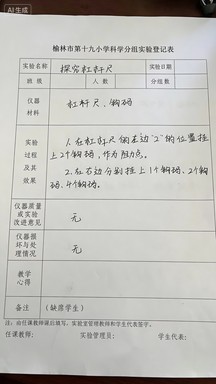 AI生成
榆林市第十九小学科学分组实验登记表
实验名称 探究杠杆尺
班级 人数 分组数
仪器材料 杠杆尺、钩码
实验过程及其效果
1.在杠杆尺的左边"2"的位置挂
上2个钩码,作为阻力点。
2.在右边分别挂上1个钩码、2个钩
码、4个钩码。
仪器质量或实验改进意见 无
仪器损坏与处理情况 无
教学心得
备注 (缺席学生)
注:由任课教师课后填写,实验室管理教师和学生代表签字。
任课教师: 实验管理员: 学生代表: